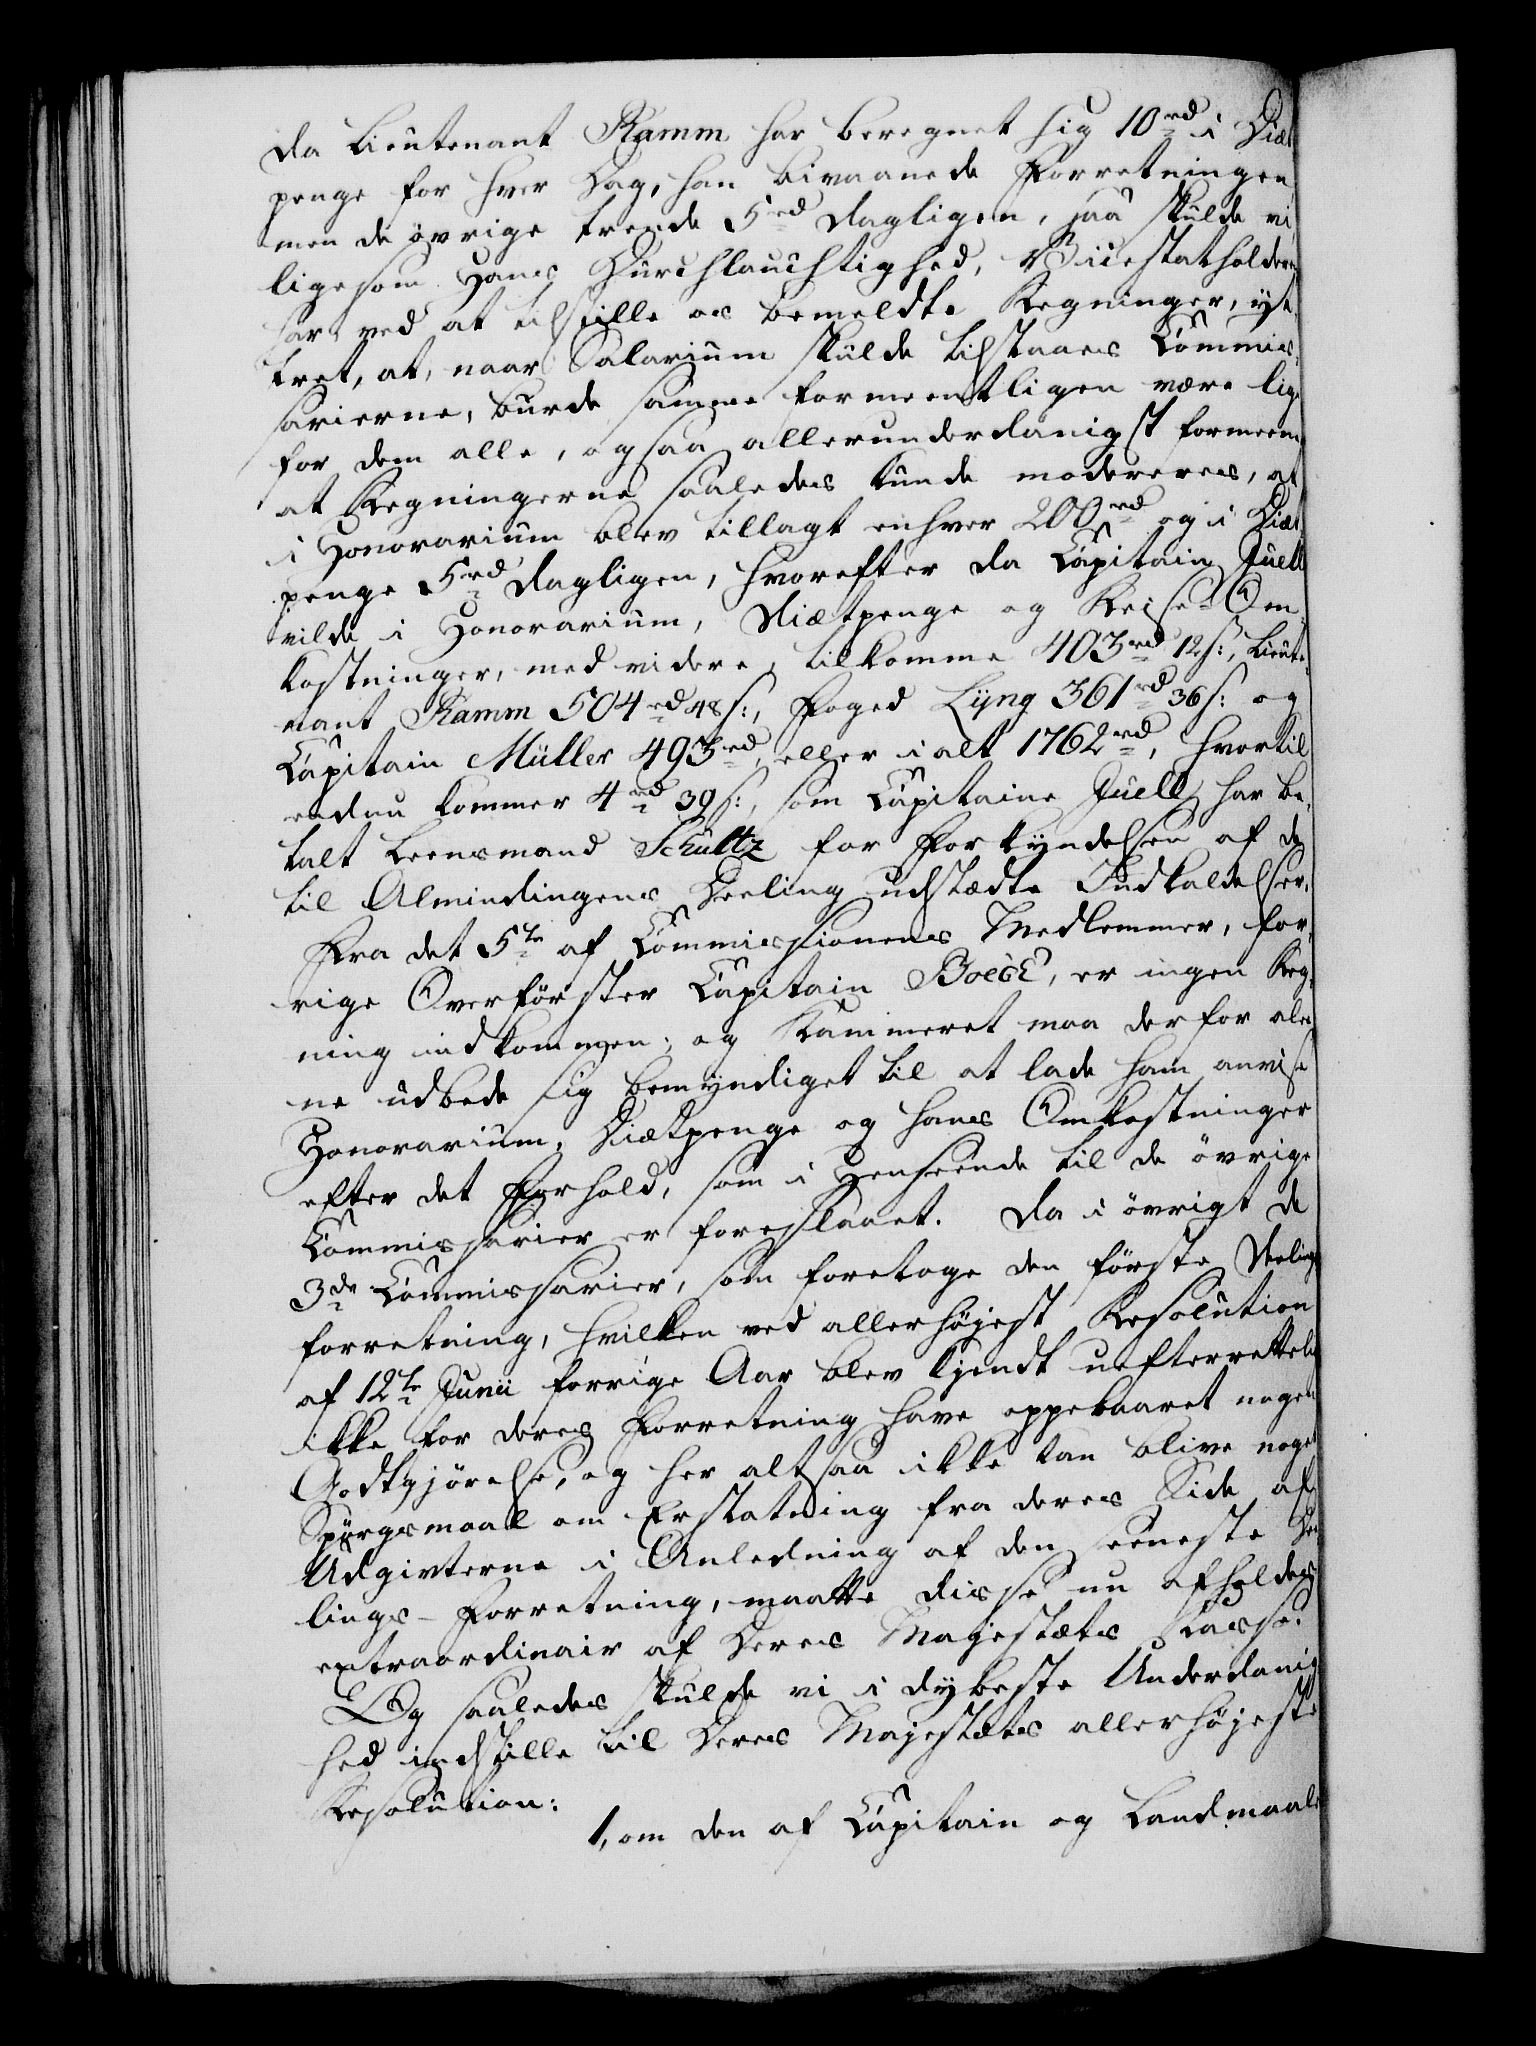 da Lieutenant Ramm har beregnet sig 10 rd i Diæt
penge for hver Dag, han bivaanede Forretningen
men de øvrige trende 5 rd dagligen, saa skulde vi
ligesom Hans Durchlauchtighed, Vicestatholderen
har, ved at tilstille os bemeldte Regninger, yt
tret, at, naar Salarium skulde tilstaaes Commis
sarierne, burde samme formeentligen være lige
for dem alle, ogsaa allerunderdanigst formeene
at Regningerne saaledes kunde modereres, at
i Honorarium blev tillagt enhver 200 rd og i Diæt
penge 5 rd dagligen, hvorefter da Capitain Juell
vilde i Honorarium, Diætpenge og Reise-Om
kostninger, med videre, tilkomme 403 rd 12 s:, Lieute
nant Ramm 504 rd 48 s:, Foged Lyng 361 rd 36 s: og
Capitain Müller 493 rd, eller i alt 1762 rd, hvortil
endnu kommer 4 rd 39 s:, som Capitaine Juell har be
talt Leensmand Schultz for Forkyndelsen af de
til Almindingens Deeling udstædte Indkaldelser.
Fra det 5te af Commissionens Medlemmer, for
rige Overförster Capitain Boeck, er ingen Reg
ning indkommen, og Kammeret maa derfor ale
ne udbede sig bemyndiget til at lade ham anvise
Honorarium, Diætpenge og hans Omkostninger
efter det Forhold, som i Henseende til de övrige
Commissarier er foreslaaet. Da i övrigt de
3de Commissarier, som foretoge den förste Deelings
forretning, hvilken ved allerhöjest Resolution
af 12te Junii forrige Aar blev kjendt uefterrettelig
ikke for deres Forretning have oppebaaret nogen
Godtgjörelse, og her altsaa ikke kan blive noget
Spörgsmaal om Erstatning fra deres Side af
Udgivterne i Anledning af den seeneste Dee
lings-Forretning, maatte disse nu afholdes
extraordinair af Deres Majestæts Kasse.
Og saaledes skulde vi i dybeste Underdanig
hed indstille til Deres Majestæts allerhöjeste
Resolution:
1, om den af Capitain og Landmaale